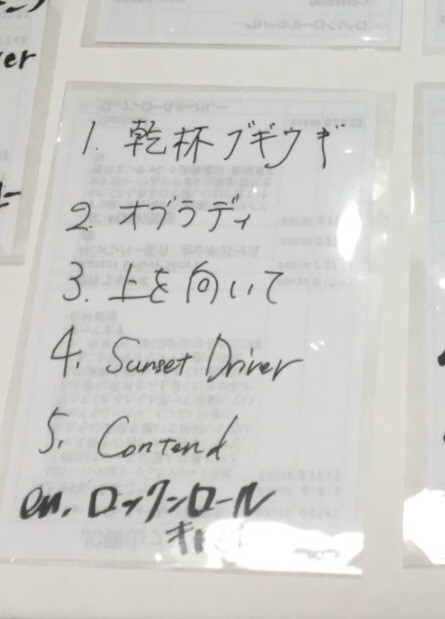 1. 乾杯ブギウギ
2. オブラディ
3. 上を向いて
4. Sunset Driver
5. Contend
en. ロックンロール
ver